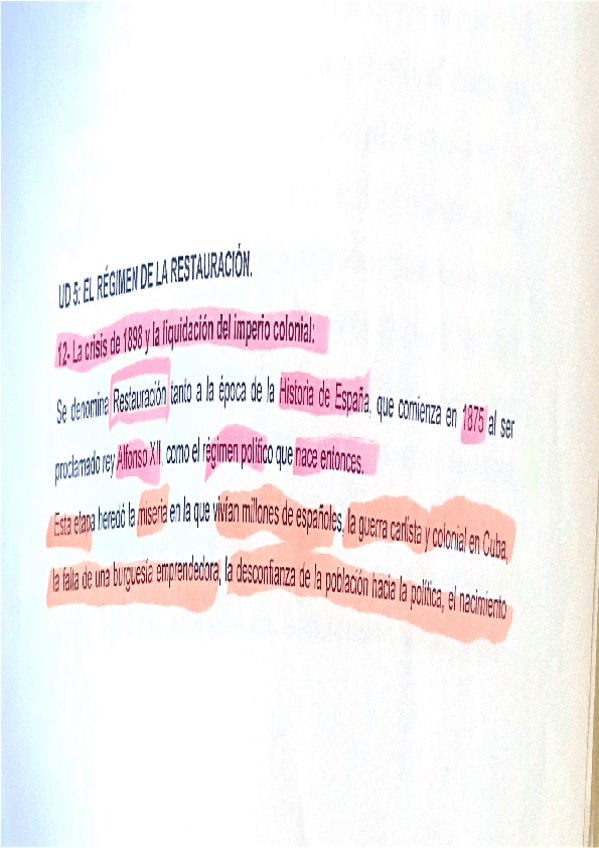 UD 5: EL RÉGIMEN DE LA RESTAURACIÓN.
12- La crisis de 1898 y la liquidación del imperio colonial:
Se denomina Restauración tanto a la época de la Historia de España, que comienza en 1875 al ser
proclamado rey Alfonso XII, como el régimen político que nace entonces.
Esta etapa heredó la miseria en la que vivían millones de españoles, la guerra carlista y colonial en Cuba,
la falta de una burguesía emprendedora, la desconfianza de la población hacia la política, el nacimiento